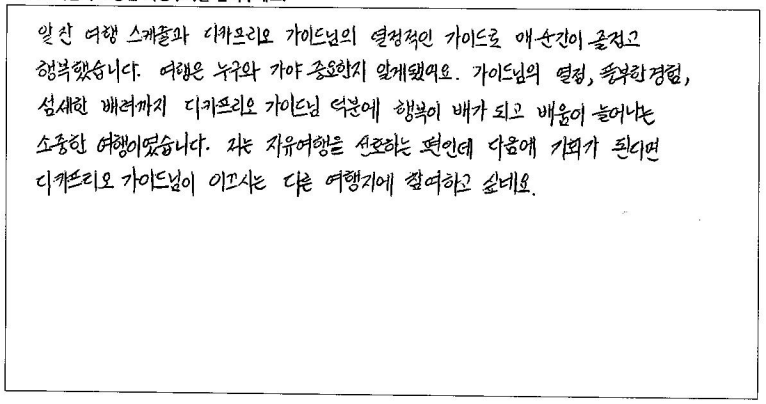 알찬 여행 스케줄과 디카프리오 가이드님의 열정적인 가이드로 매순간이 즐겁고
행복했습니다. 여행은 누구와 가야 중요한지 알게됐어요. 가이드님의 열정, 풍부한 경험,
섬세한 배려까지 디카프리오 가이드님 덕분에 행복이 배가 되고 배움이 늘어나는
소중한 여행이였습니다. 저는 자유여행을 선호하는 편인데 다음에 기회가 된다면
디카프리오 가이드님이 이끄시는 다른 여행지에 참여하고 싶네요.